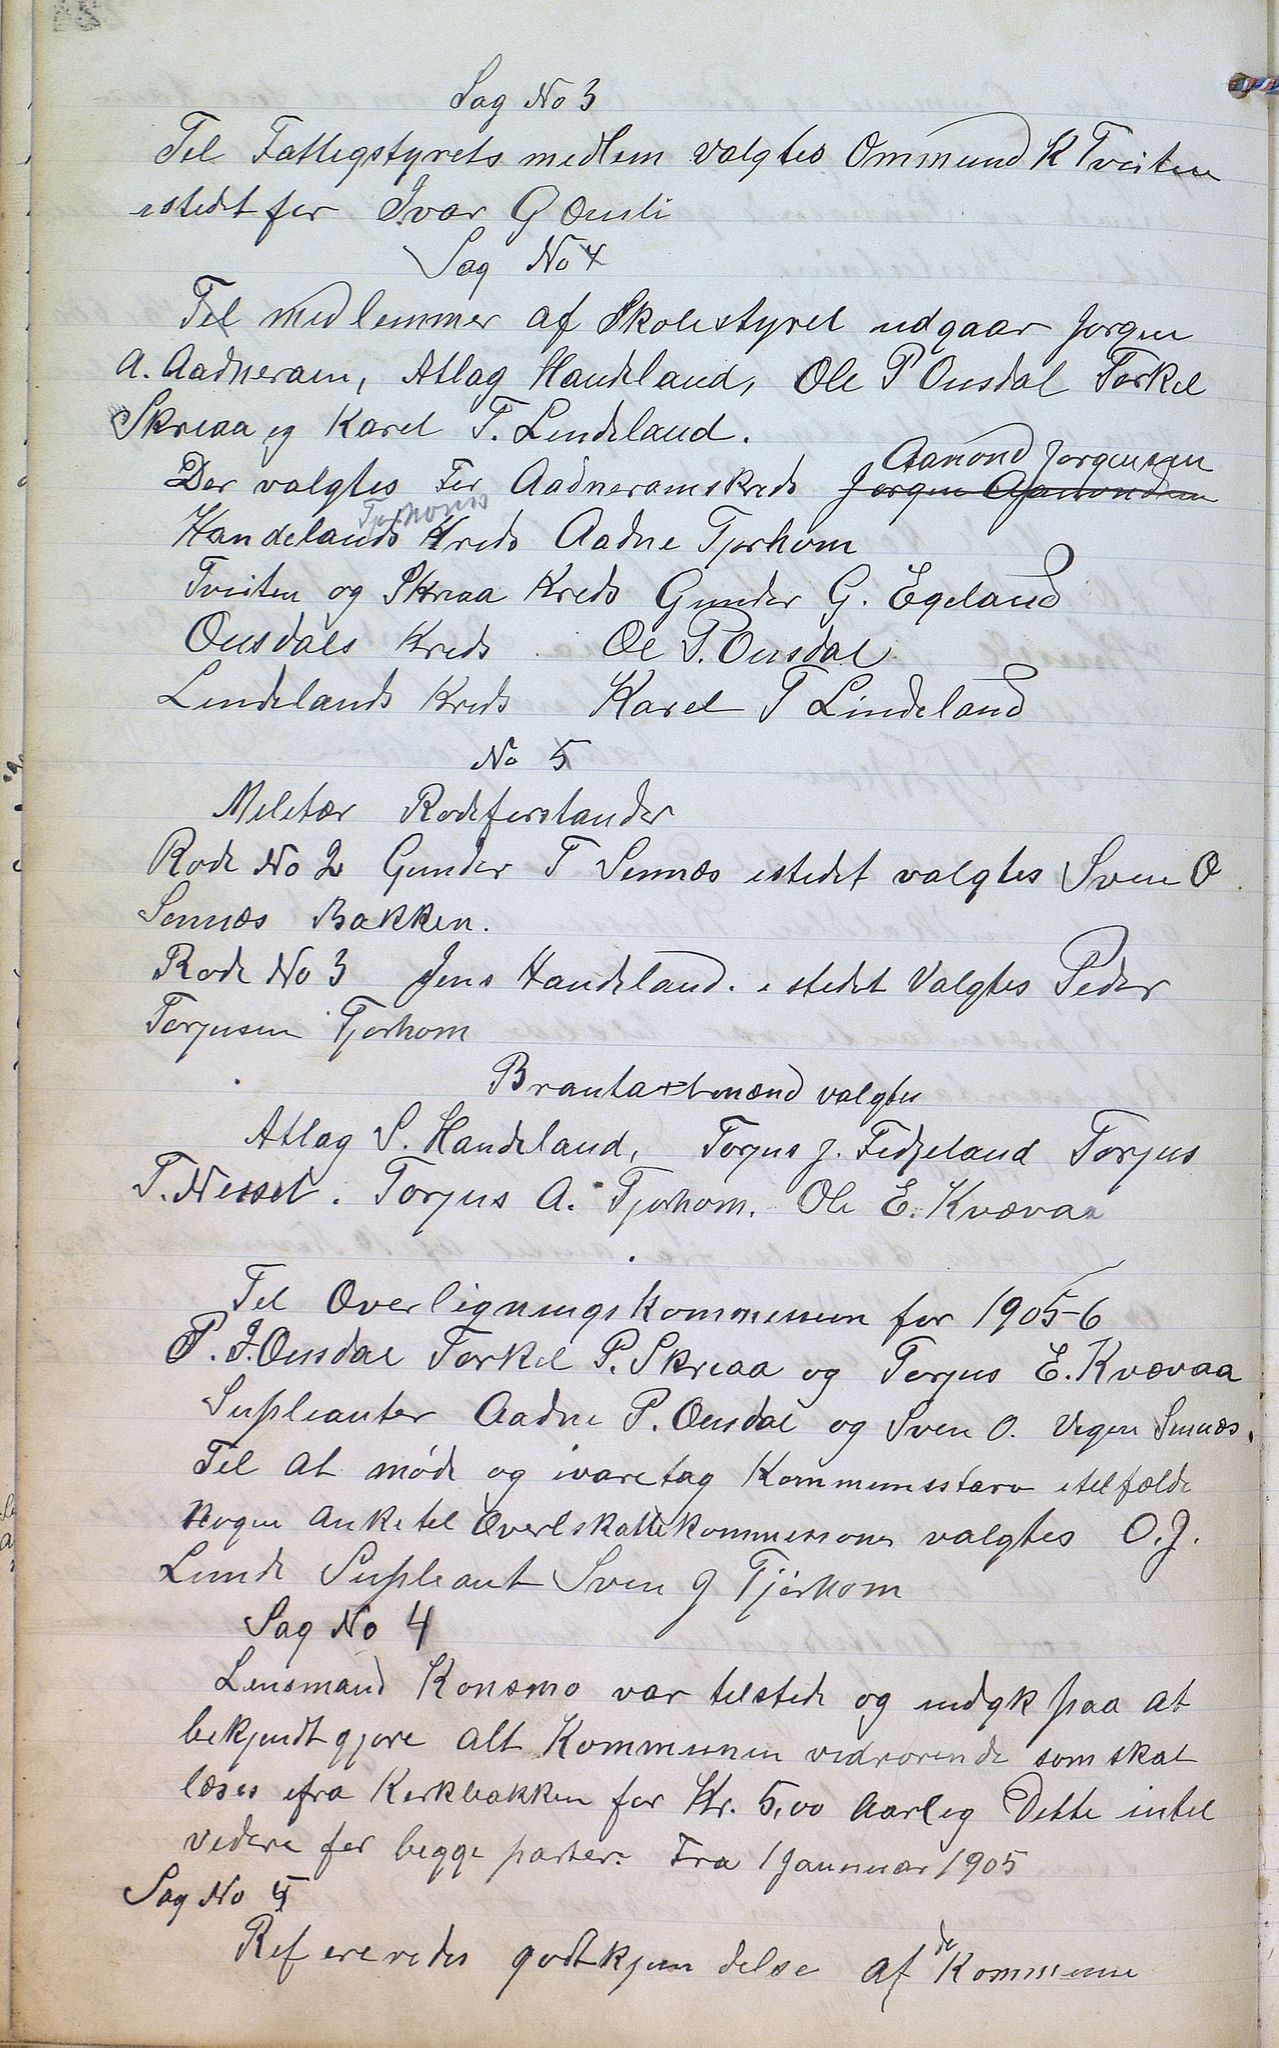 Sag No 3
Til Fattigstyrets medlem valgtes Ommund K Tveiten
istedet for Ivar G Ousli
Sag No 4
Til medlemmer af Skolestyret udgaar Jørgen
A. Aadneram, Atlag Handeland, Ole P Ousdal Torkel
Skreaa og Karel T. Lindeland.
Aanond Jørgensen
Der valgtes For Aadneramskreds Jørgen Aanondsen
Tjorhoms
Handelands Kreds Aadne Tjorhom
Tveiten og Skreaa Kreds Gunder G. Egeland
Ousdals Kreds Ol P. Ousdal
Lindelands Kreds Karel T Lindeland
No 5
Militær Rodeforstander
Rode No 2 Gunder T Sinnæs istedet valgtes Sven O
Sinnæs Bakken.
Rode No 3 Jens Handeland. istedet Valgtes Peder
Torjusen Tjorhom
Brantaxtmænd valgtes
Atlag S. Handeland, Torjus J. Fidjeland Torjus
T. Nesset. Torjus A. Tjorhom. Ole E. Kvævaa
Til Overligningskommesion for 1905-6
P. J. Ousdal Torkel P. Skreaa og Torjus E. Kvævaa
Supleanter Aadne P. Ousdal og Sven O. Vegen Sinnæs.
Til at møde og ivaretag Kommunsstarv itilfælde
nogen Anke til Overlskattekommesionen valgtes O. J.
Lunde Supleant Sven J Tjørhom
Sag No 4
Lensmand Konsmo var tilstede og indgk paa at
bekjendtgjøre alt Kommunen vedrørende som skal
læses ifra Kirkbakken for Kr. 5,00 Aarlig Dette intil
videre for begge parter. Fra 1 Januar 1905
Sag No 5
de
Refereredes godtkjendelse af Kommune